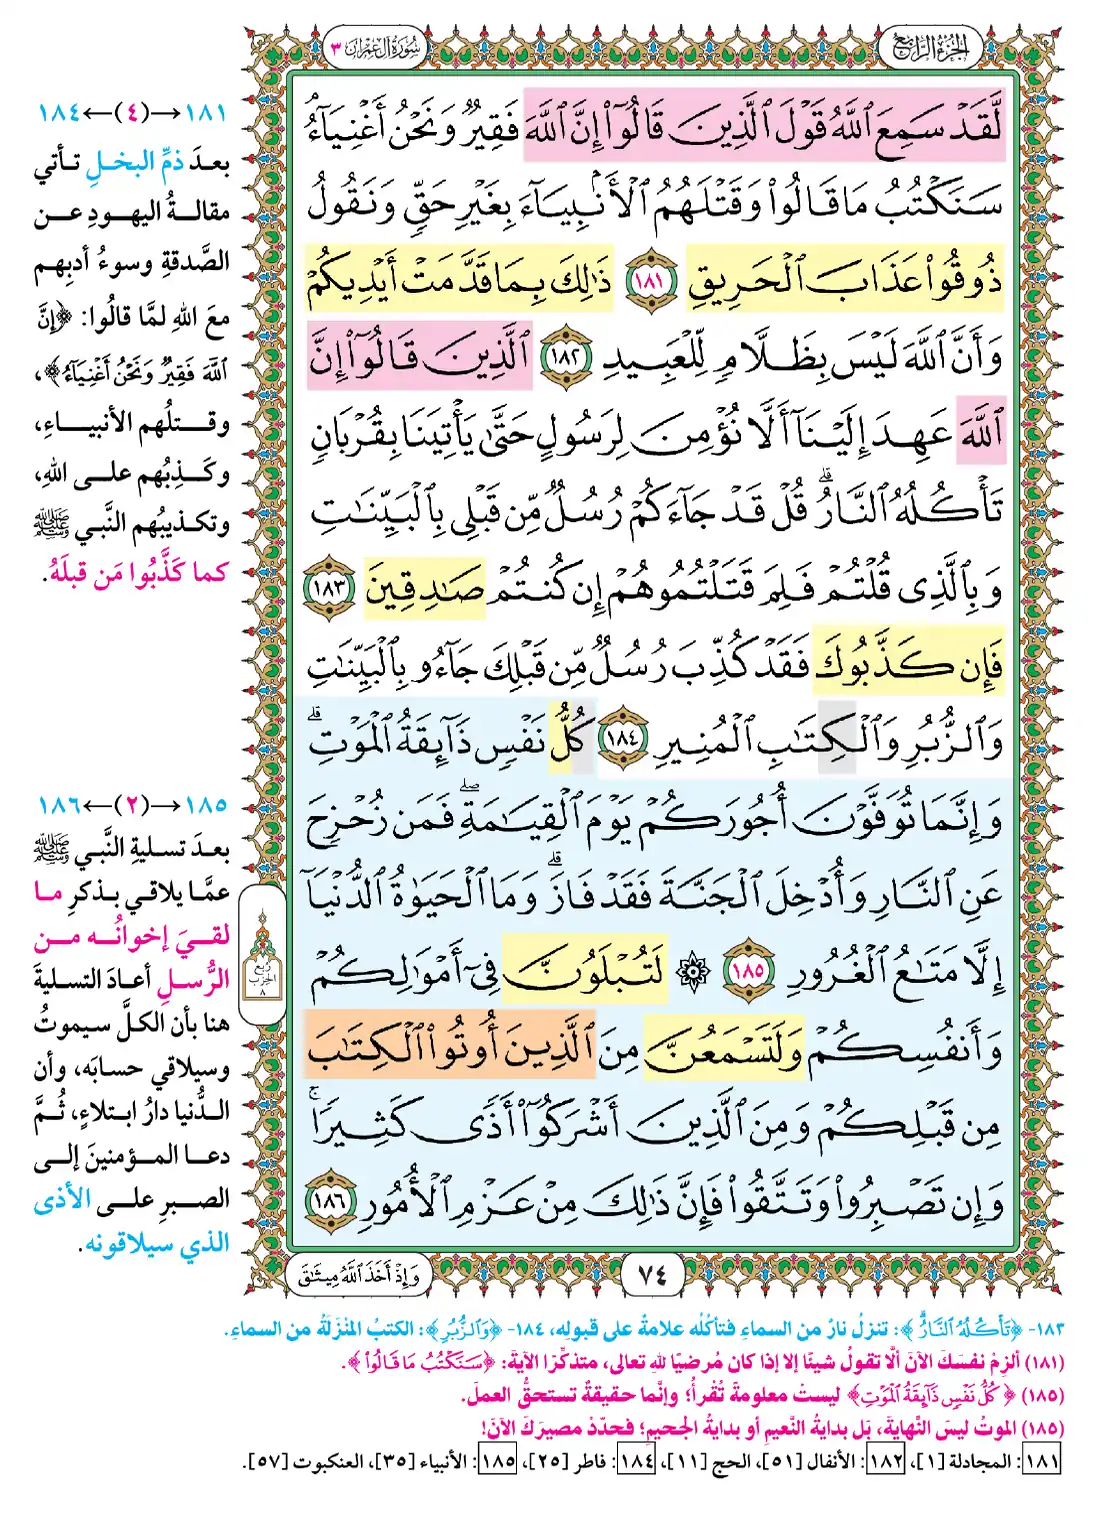 الجزء الرابع
سورة آل عمران ٣
لَّقَدْ سَمِعَ ٱللَّهُ قَوْلَ ٱلَّذِينَ قَالُوٓا۟ إِنَّ ٱللَّهَ فَقِيرٌ وَنَحْنُ أَغْنِيَآءُ
سَنَكْتُبُ مَا قَالُوا۟ وَقَتْلَهُمُ ٱلْأَنۢبِيَآءَ بِغَيْرِ حَقٍّ وَنَقُولُ
ذُوقُوا۟ عَذَابَ ٱلْحَرِيقِ ١٨١ ذَٰلِكَ بِمَا قَدَّمَتْ أَيْدِيكُمْ
وَأَنَّ ٱللَّهَ لَيْسَ بِظَلَّامٍ لِّلْعَبِيدِ ١٨٢ ٱلَّذِينَ قَالُوٓا۟ إِنَّ
ٱللَّهَ عَهِدَ إِلَيْنَآ أَلَّا نُؤْمِنَ لِرَسُولٍ حَتَّىٰ يَأْتِيَنَا بِقُرْبَانٍ
تَأْكُلُهُ ٱلنَّارُ ۗ قُلْ قَدْ جَآءَكُمْ رُسُلٌ مِّن قَبْلِى بِٱلْبَيِّنَٰتِ
وَبِٱلَّذِى قُلْتُمْ فَلِمَ قَتَلْتُمُوهُمْ إِن كُنتُمْ صَٰدِقِينَ ١٨٣
فَإِن كَذَّبُوكَ فَقَدْ كُذِّبَ رُسُلٌ مِّن قَبْلِكَ جَآءُو بِٱلْبَيِّنَٰتِ
وَٱلزُّبُرِ وَٱلْكِتَٰبِ ٱلْمُنِيرِ ١٨٤ كُلُّ نَفْسٍ ذَآئِقَةُ ٱلْمَوْتِ ۗ
وَإِنَّمَا تُوَفَّوْنَ أُجُورَكُمْ يَوْمَ ٱلْقِيَٰمَةِ ۖ فَمَن زُحْزِحَ
عَنِ ٱلنَّارِ وَأُدْخِلَ ٱلْجَنَّةَ فَقَدْ فَازَ ۗ وَمَا ٱلْحَيَوٰةُ ٱلدُّنْيَآ
إِلَّا مَتَٰعُ ٱلْغُرُورِ ١٨٥ ۞ لَتُبْلَوُنَّ فِىٓ أَمْوَٰلِكُمْ
وَأَنفُسِكُمْ وَلَتَسْمَعُنَّ مِنَ ٱلَّذِينَ أُوتُوا۟ ٱلْكِتَٰبَ
مِن قَبْلِكُمْ وَمِنَ ٱلَّذِينَ أَشْرَكُوٓا۟ أَذًى كَثِيرًا ۚ
وَإِن تَصْبِرُوا۟ وَتَتَّقُوا۟ فَإِنَّ ذَٰلِكَ مِنْ عَزْمِ ٱلْأُمُورِ ١٨٦
٧٤
وَإِذْ أَخَذَ ٱللَّهُ مِيثَٰقَ
١٨١→(٤)←١٨٤
بعدَ ذمِّ البخلِ تأتي
مقالةُ اليهودِ عن
الصَّدقةِ وسوءُ أدبِهم
معَ اللهِ لمَّا قالُوا: ﴿إِنَّ
ٱللَّهَ فَقِيرٌ وَنَحْنُ أَغْنِيَآءُ﴾،
وقتلُهم الأنبياءِ،
وكَذِبُهم على اللهِ،
وتكذيبُهم النَّبي ﷺ
كما كَذَّبُوا مَن قبلَهُ.
١٨٥→(٢)←١٨٦
بعدَ تسليةِ النَّبي ﷺ
عمَّا يلاقي بذكرِ ما
لقيَ إخوانُه من
الرُّسلِ أعادَ التسليةَ
هنا بأن الكلَّ سيموتُ
وسيلاقي حسابَه، وأن
الدُّنيا دارُ ابتلاءٍ، ثُمَّ
دعا المؤمنينَ إلى
الصبرِ على الأذى
الذي سيلاقونه.
ربع
الحزب
٨
١٨٣- ﴿تَأْكُلُهُ ٱلنَّارُ﴾: تنزلُ نارٌ من السماءِ فتأكلُه علامةً على قبولِه، ١٨٤- ﴿وَٱلزُّبُرِ﴾: الكتبُ المُنْزَلَةُ من السماءِ.
(١٨١) ألزِمْ نفسَكَ الآنَ ألَّا تقولَ شيئًا إلا إذا كان مُرضيًا للهِ تعالى، متذكِّرًا الآيةَ: ﴿سَنَكْتُبُ مَا قَالُوا۟﴾.
(١٨٥) ﴿كُلُّ نَفْسٍ ذَآئِقَةُ ٱلْمَوْتِ﴾ ليستْ معلومةً تُقْرأُ؛ وإنَّما حقيقةٌ تستحقُّ العملَ.
(١٨٥) الموتُ ليسَ النِّهايةَ، بَل بدايةُ النَّعيمِ أو بدايةُ الجحيمِ؛ فحدِّدْ مصيرَكَ الآنَ!
١٨١: المجادلة [١]، ١٨٢: الأنفال [٥١]، الحج [١١]، ١٨٤: فاطر [٢٥]، ١٨٥: الأنبياء [٣٥]، العنكبوت [٥٧].